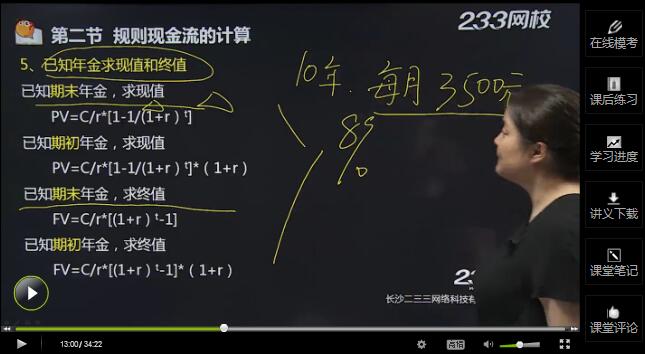 233网校
第二节 规则现金流的计算
5、已知年金求现值和终值
已知期末年金，求现值
PV=C/r*[1-1/(1+r) t]
已知期初年金，求现值
PV=C/r*[1-1/(1+r) t]*（1+r）
已知期末年金，求终值
FV=C/r*[(1+r) t-1]
已知期初年金，求终值
FV=C/r*[(1+r) t-1]*（1+r）
10年. 每月 3500元
8%
23
长沙二三三网络科技有
13:00/34:22
高清
在线模考
课后练习
学习进度
讲义下载
课堂笔记
课堂评论